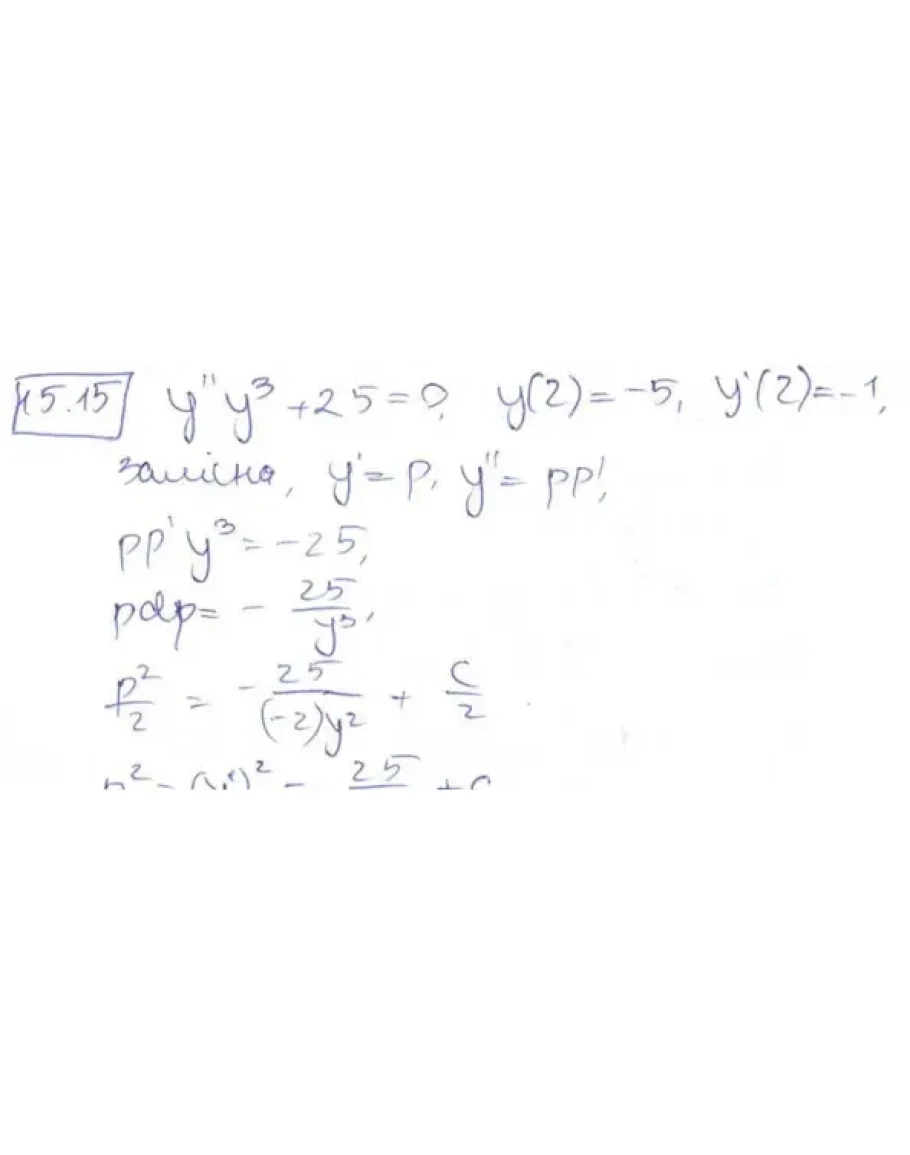 15.15 y''y³ + 25 = 0, y(2) = -5, y'(2) = -1,
заміна, y' = p, y'' = pp',
pp'y³ = -25,
pdp = - 25/y³,
p²/2 = - 25/((-2)y²) + C/2
p² = (y')² = 25 + C